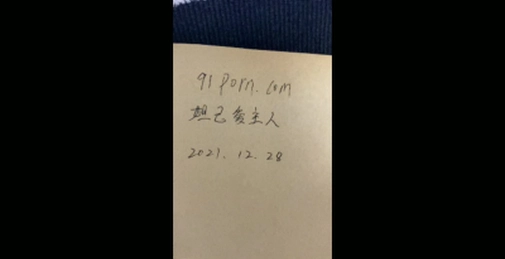 91porn.com
妲己爱主人
2021.12.28